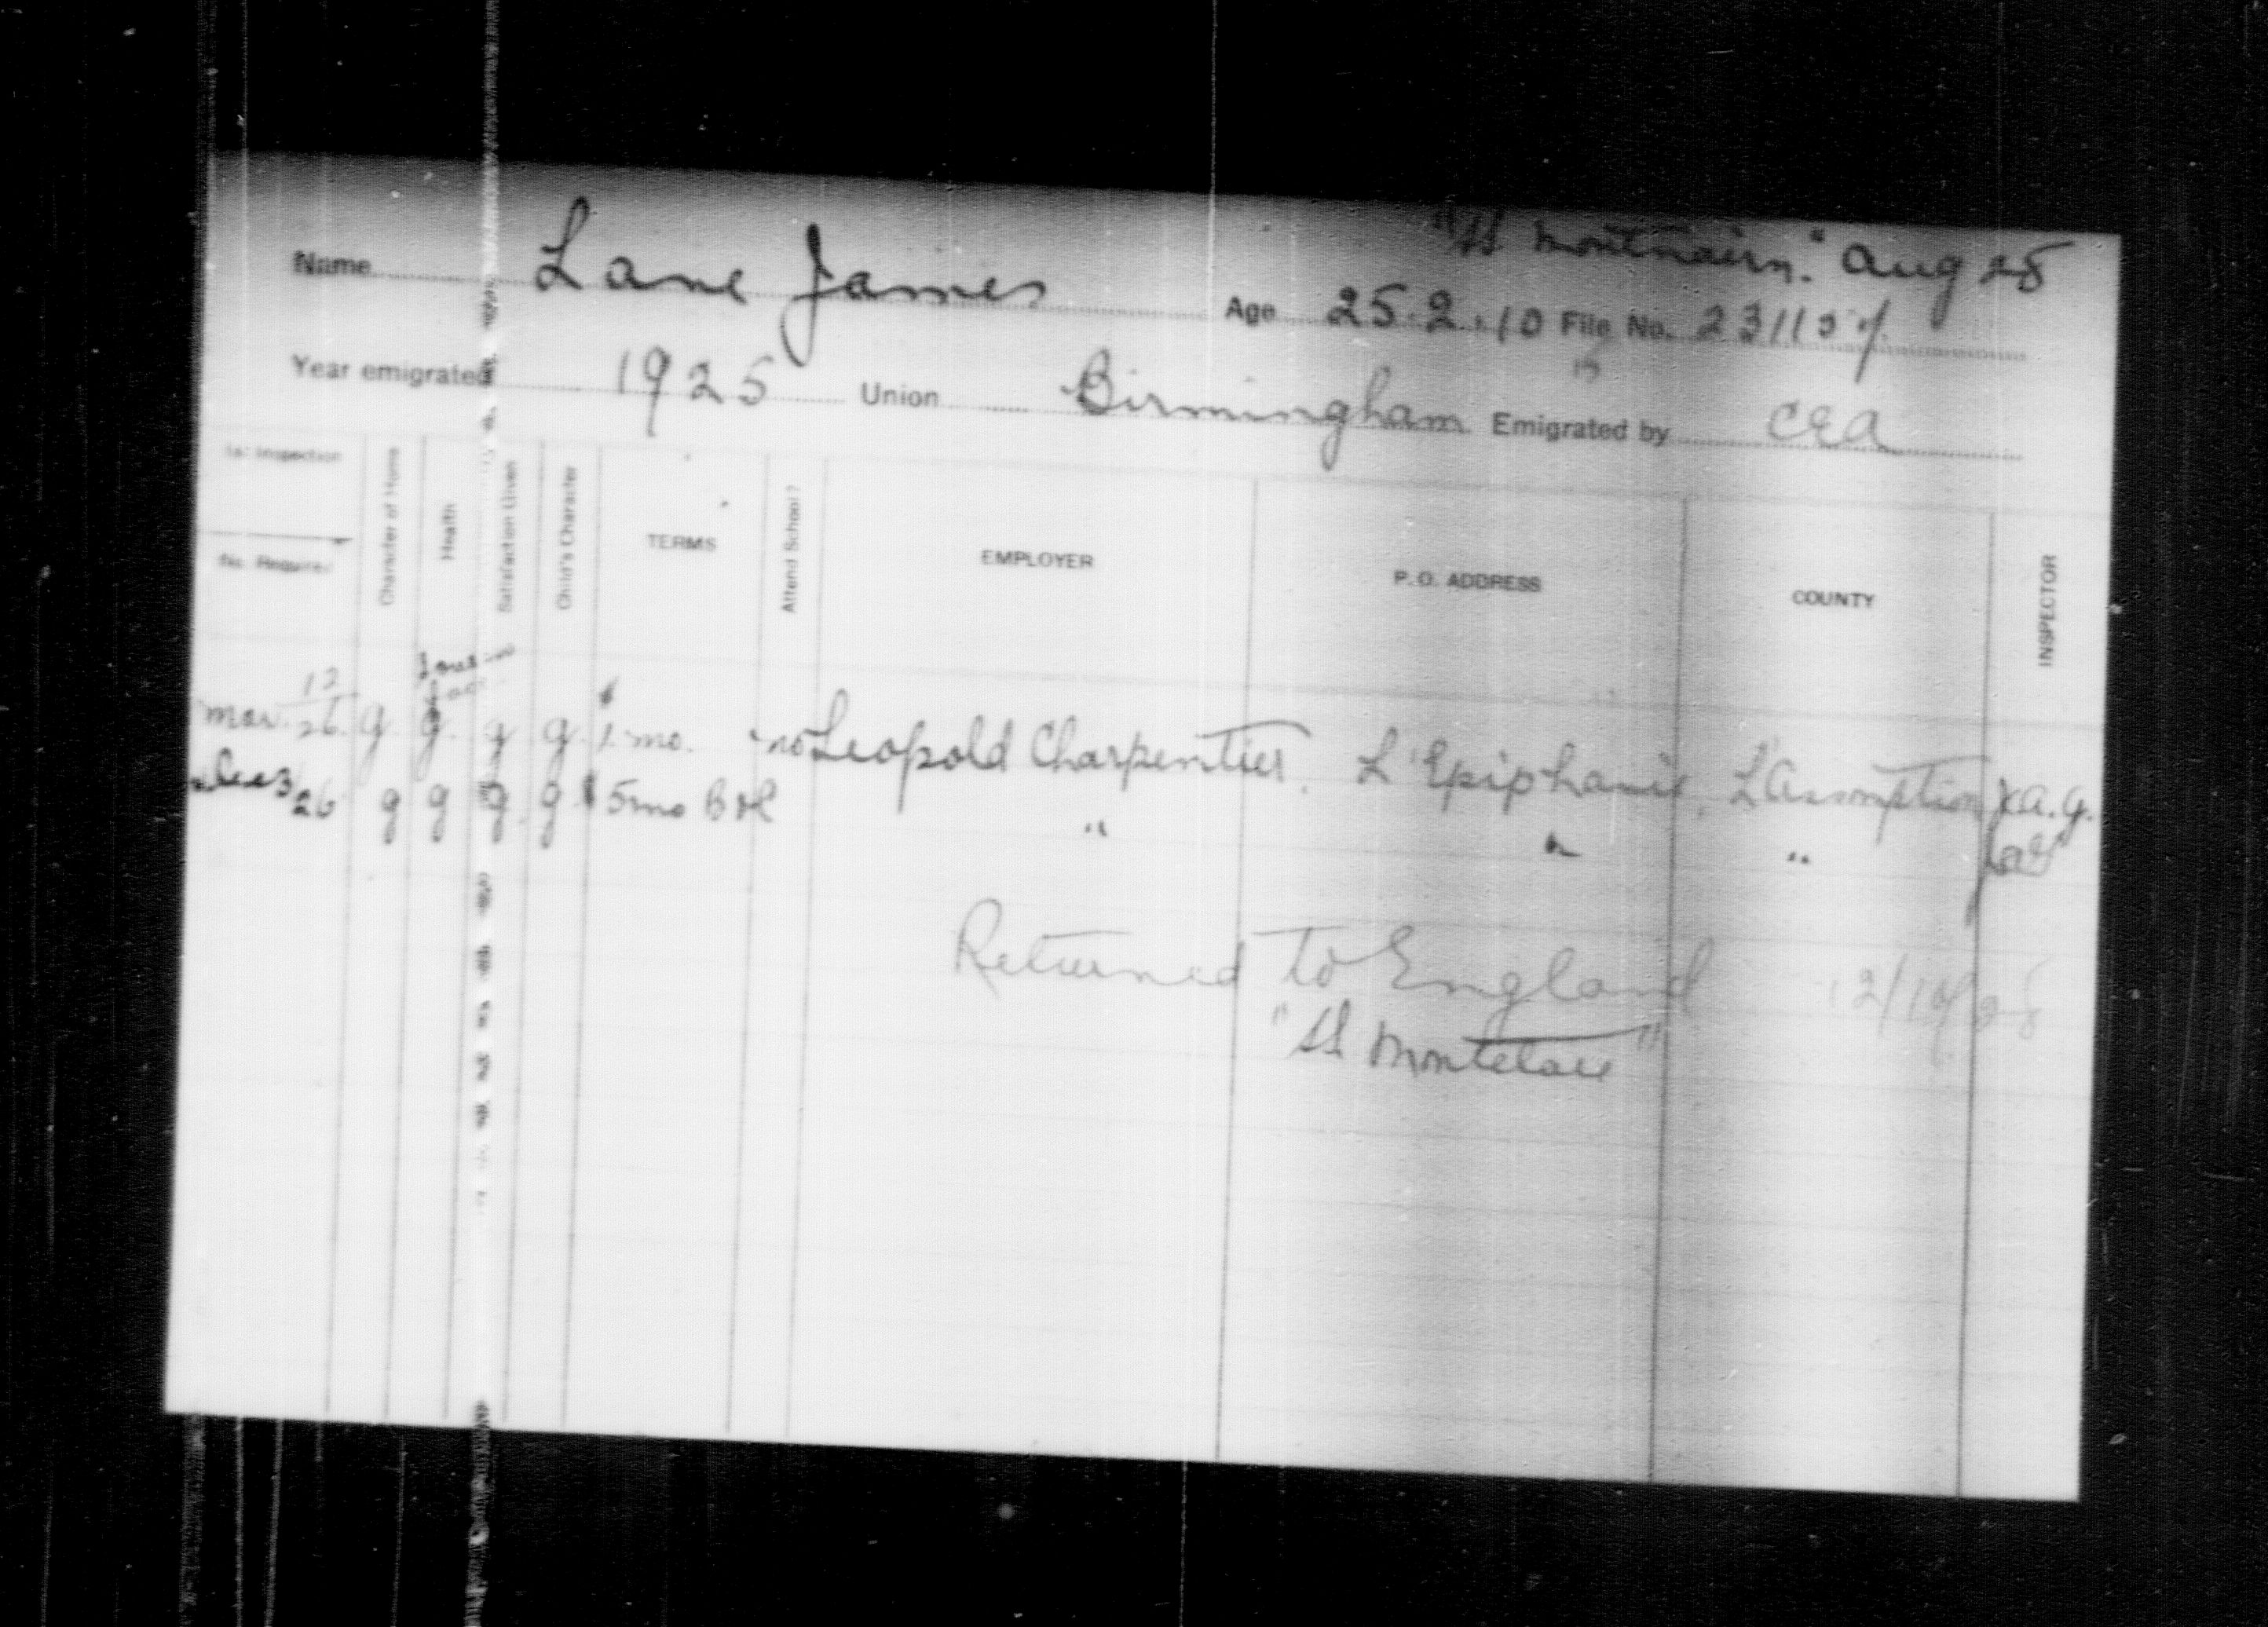 "SS Montnairn." Aug 25
Name Lane James Age 25.2.10 File No.
Year emigrated 1925 Union Birmingham Emigrated by CEA
1st Inspection
No. Required
Character of Home
Health
Satisfaction Given
Child's Character
TERMS
Attend School?
EMPLOYER
P.O. ADDRESS
COUNTY
INSPECTOR
Mar 12/26 g g. g g. $1. mo. no Leopold Charpentier. L'Epiphanie, L'Assomption
Dec 3/26 g g g. g $5 mo " " "
Returned to England 12/10/28
"SS Montclare"